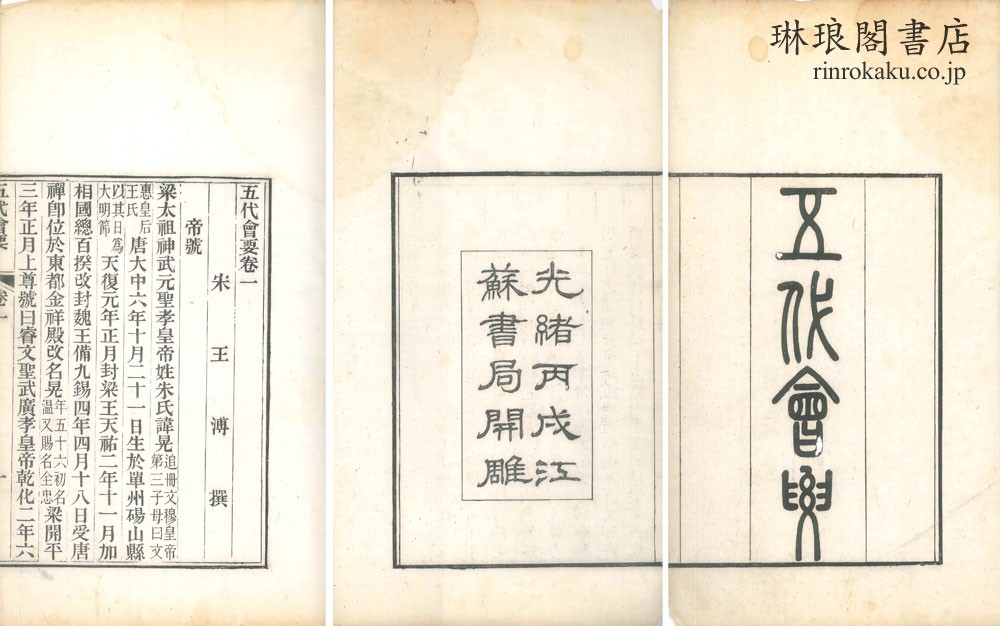 琳琅閣書店
rinrokaku.co.jp
五代會要
光緒丙戌江
蘇書局開雕
五代會要卷一
宋王溥撰
帝號
梁太祖神武元聖孝皇帝姓朱氏諱晃追冊文穆皇帝第三子母曰文
惠皇后王氏唐大中六年十月二十一日生於單州碭山縣
以其日為大明節天復元年正月封梁王天祐二年十一月加
相國總百揆改封魏王備九錫四年四月十八日受唐
禪卽位於東都金祥殿改名晃年五十六初名溫又賜名全忠梁開平
三年正月上尊號曰睿文聖武廣孝皇帝乾化二年六
五代會要
卷一
一